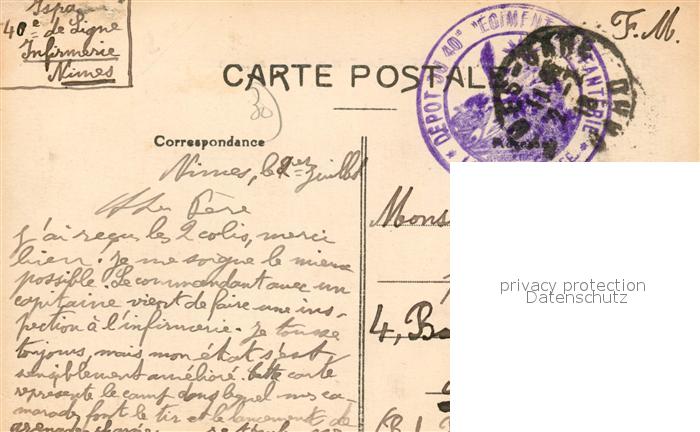 Ispa
40e de Ligne
Infirmerie
Nimes
F.M.
CARTE POSTAL
DEPOT DU 40e REGIMENT INFANTERIE
GARE
30
Correspondance
Nimes, le 1er juillet
Père
j'ai reçu les 2 colis, merci
bien. Je me soigne le mieux
possible. Le commandant avec un
capitaine vient de faire une ins-
pection à l'infirmerie. Je tousse
toujours, mais mon état s'est
sensiblement amélioré. Cette carte
représente le camp dans lequel nos ca-
marades font le tir et le lancement de
grenades
Mons
4, Ba
privacy protection
Datenschutz